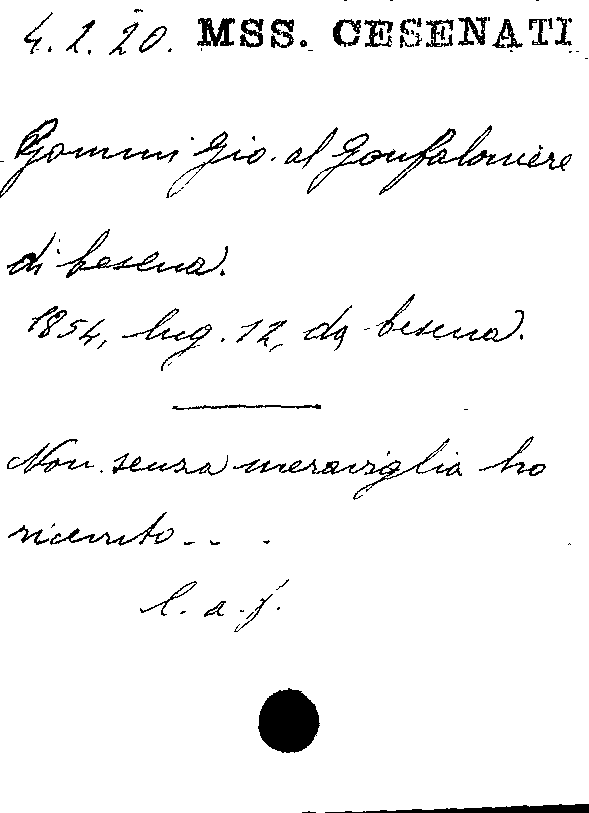 4.2.20. MSS. CESENATI
Gommi Gio. al Gonfaloniere
di Cesena.
1854, lug. 12, da Cesena.
Non senza meraviglia ho
ricevuto...
l. a. f.